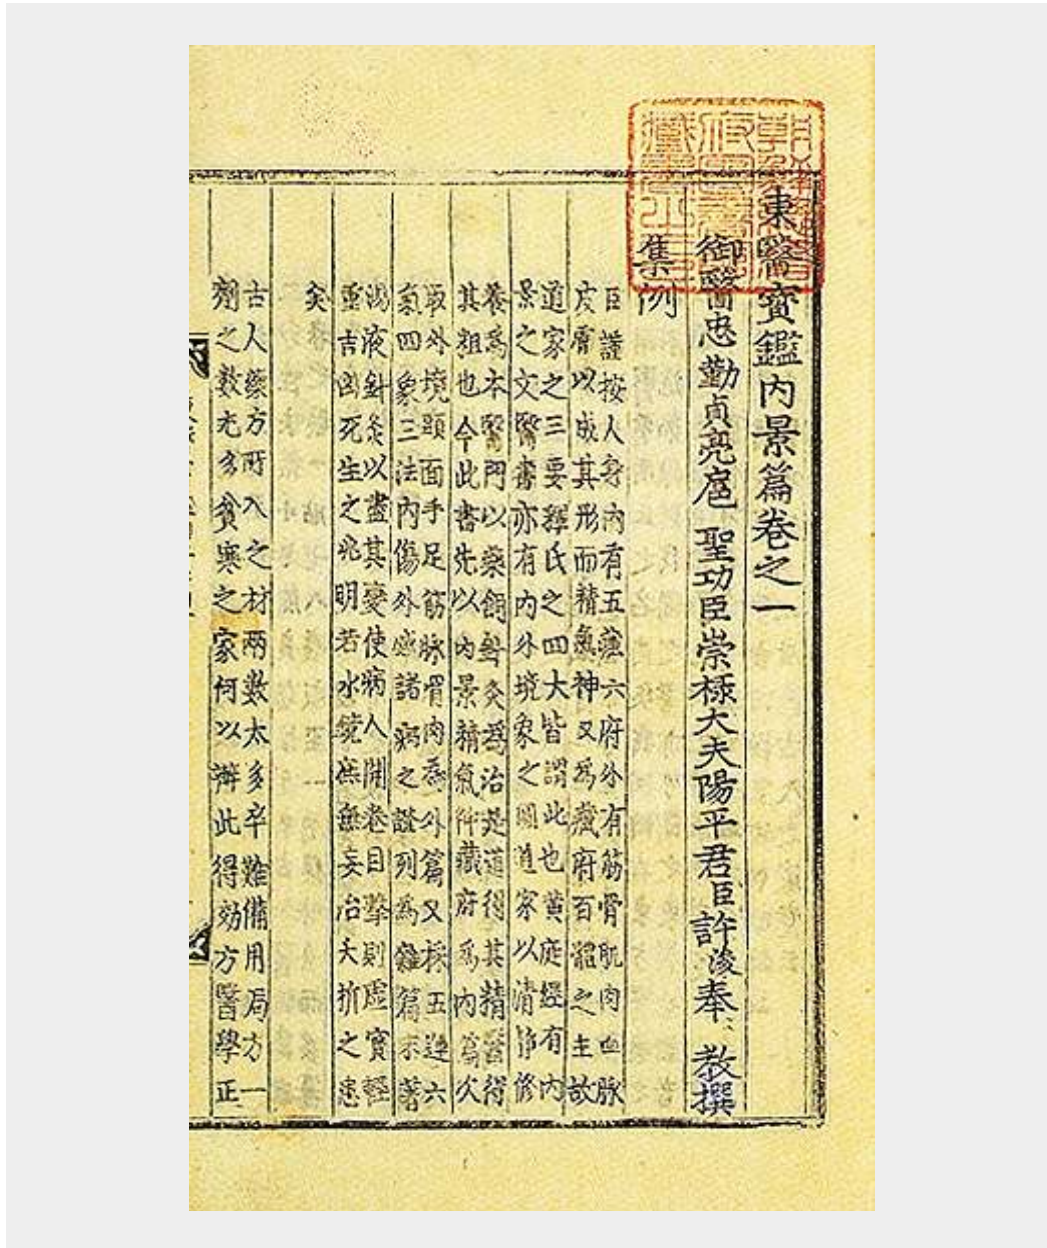 東醫寶鑑內景篇卷之一
御醫忠勤貞亮扈 聖功臣崇祿大夫陽平君臣許浚奉 教撰
集例
臣謹按人身內有五藏六府外有筋骨肌肉血脉
皮膚以成其形而精氣神又爲藏府百體之主故
道家之三要釋氏之四大皆謂此也黃庭經有內
景之文醫書亦有內外境象之圖道家以清靜修
養爲本醫門以藥餌鍼灸爲治是道得其精醫得
其粗也今此書先以內景精氣神藏府爲內篇次
取外境頭面手足筋脉骨肉爲外篇又採五運六
氣四象三法內傷外感諸病之證列爲雜篇末著
湯液針灸以盡其變使病人開卷目擊則虛實輕
重吉凶死生之兆明若水鏡庶無妄治夭折之患
矣
古人藥方所入之材兩數太多卒難備用局方一
劑之數尤多貧寒之家何以辦此得効方醫學正